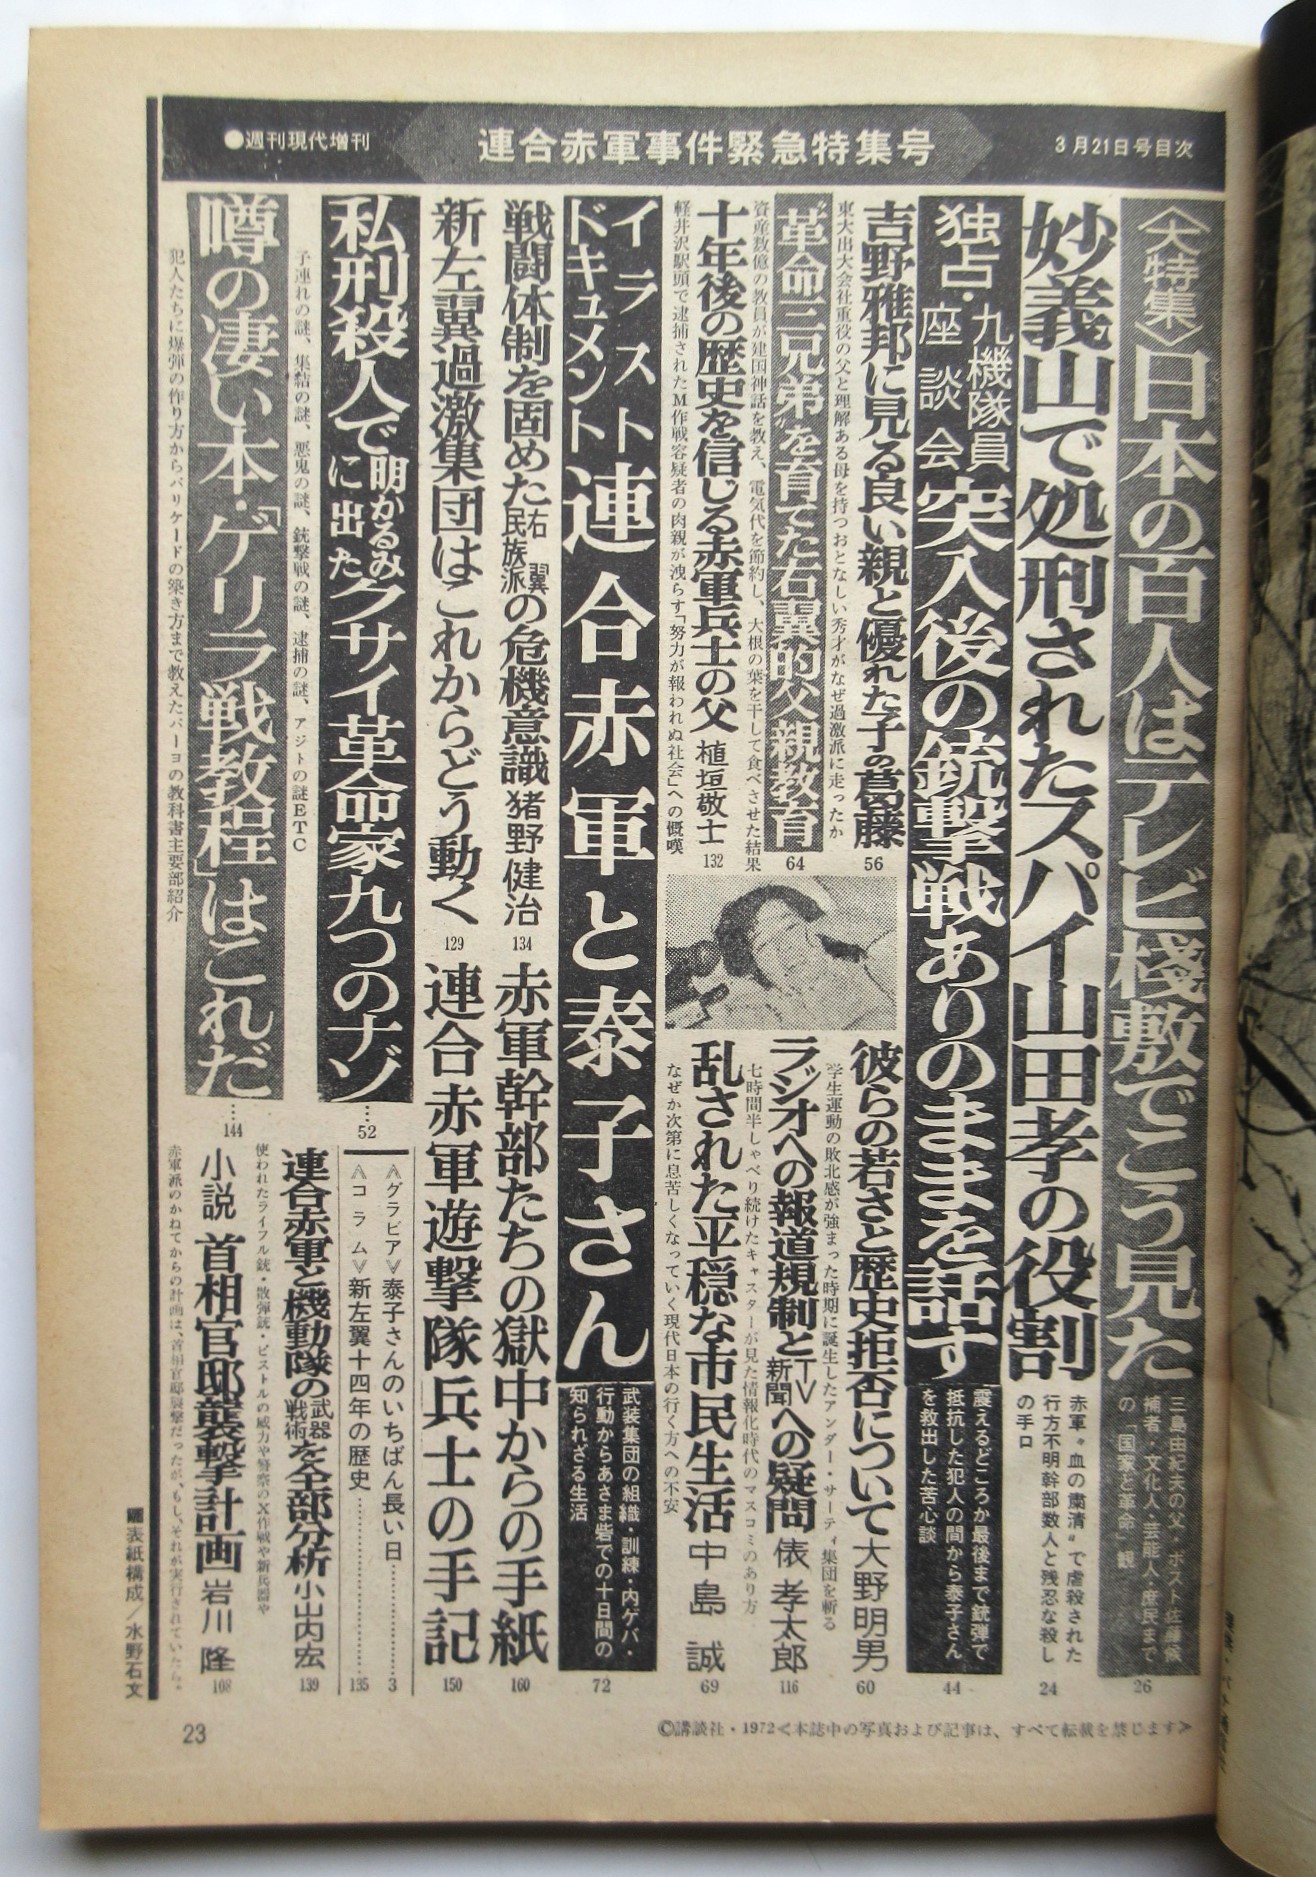 ●週刊現代増刊
連合赤軍事件緊急特集号
3月21日号目次
〈大特集〉日本の百人はテレビ棧敷でこう見た
三島由紀夫の父・ポスト佐藤候
補者・文化人・芸能人・庶民まで
の「国家と革命」観
26
妙義山で処刑されたスパイ山田孝の役割
赤軍〝血の粛清〟で虐殺された
行方不明幹部数人と残忍な殺し
の手口
24
独占・九機隊員座談会 突入後の銃撃戦ありのままを話す
震えるどころか最後まで銃弾で
抵抗した犯人の間から泰子さん
を救出した苦心談
44
吉野雅邦に見る良い親と優れた子の葛藤
56
東大出大会社重役の父と理解ある母を持つおとなしい秀才がなぜ過激派に走ったか
〝革命三兄弟〟を育てた右翼的父親教育
64
資産数億の教員が建国神話を教え、電気代を節約し、大根の葉を干して食べさせた結果
十年後の歴史を信じる赤軍兵士の父 植垣敬士
132
軽井沢駅頭で逮捕されたM作戦容疑者の肉親が洩らす「努力が報われぬ社会」への慨嘆
彼らの若さと歴史拒否について 大野明男
60
学生運動の敗北感が強まった時期に誕生したアンダー・サーティ集団を斬る
ラジオへの報道規制とTV新聞への疑問 俵孝太郎
116
七時間半しゃべり続けたキャスターが見た情報化時代のマスコミのあり方
乱された平穏な市民生活 中島誠
69
なぜか次第に息苦しくなっていく現代日本の行く方への不安
イラストドキュメント 連合赤軍と泰子さん
武装集団の組織・訓練・内ゲバ・
行動からあさま砦での十日間の
知られざる生活
72
戦闘体制を固めた右翼民族派の危機意識 猪野健治
134
赤軍幹部たちの獄中からの手紙
160
新左翼過激集団はこれからどう動く
129
連合赤軍遊撃隊兵士の手記
150
私刑殺人で明かるみに出たクサイ革命家九つのナゾ
52
子連れの謎、集結の謎、悪鬼の謎、銃撃戦の謎、逮捕の謎、アジトの謎ETC
≪グラビア≫泰子さんのいちばん長い日
3
≪コラム≫新左翼十四年の歴史
135
噂の凄い本・「ゲリラ戦教程」はこれだ
144
犯人たちに爆弾の作り方からバリケードの築き方まで教えたバーヨの教科書主要部紹介
連合赤軍と機動隊の武器戦術を全部分析 小山内宏
139
使われたライフル銃・散弾銃・ピストルの威力や警察のX作戦や新兵器や
小説 首相官邸襲撃計画 岩川隆
108
赤軍派のかねてからの計画は、首相官邸襲撃だったが、もし、それが実行されていたら。
表紙構成／水野石文
©講談社・1972＜本誌中の写真および記事は、すべて転載を禁じます＞
23